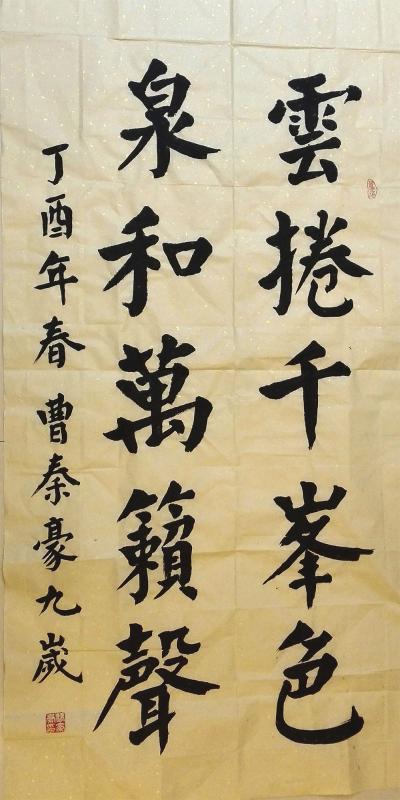 雲捲千峯色
泉和萬籟聲
丁酉年春曹秦豪九歲